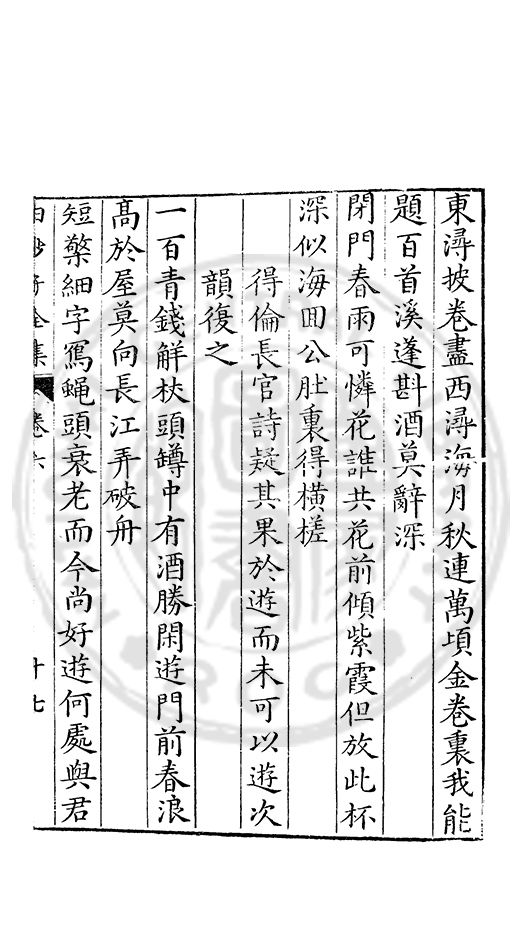 東潯披卷盡西潯海月秋連萬頃金卷裏我能
題百首溪逢斟酒莫辭深
閉門春雨可憐花誰共花前傾紫霞但放此杯
深似海囬公肚裏得橫槎
得倫長官詩疑其果於遊而未可以遊次
韻復之
一百青錢觧杖頭罇中有酒勝閑遊門前春浪
高於屋莫向長江弄破舟
短檠細字寫蝿頭衰老而今尚好遊何處與君
白沙子全集 卷六 十七